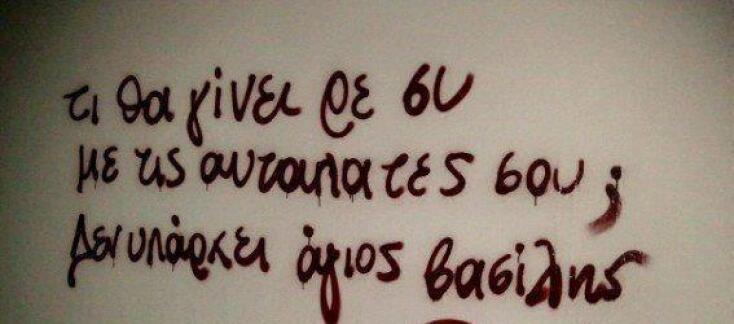 τι θα γίνει ρε συ
με τις αυταπατες σου ;
Δεν υπάρχει άγιος βασίλης